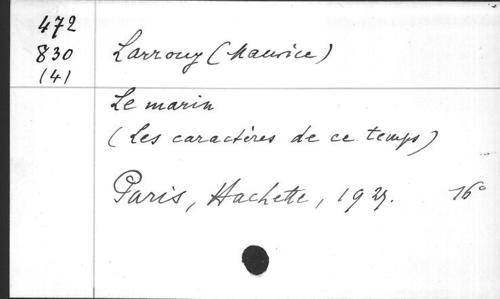 472
830
(4)
Larrouy (Maurice)
Le marin
(Les caractères de ce temps)
Paris, Hachette, 1927. 16°